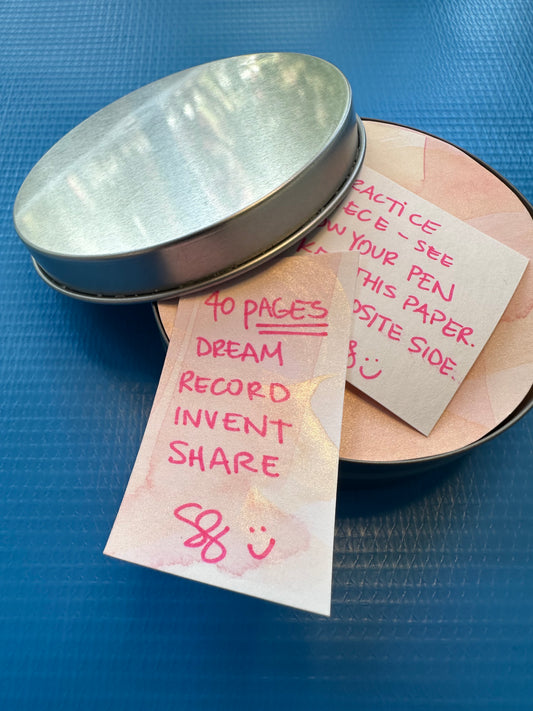 40 PAGES
DREAM
RECORD
INVENT
SHARE
RACTICE
ECE - SEE
W YOUR PEN
THIS PAPER.
OSITE SIDE.